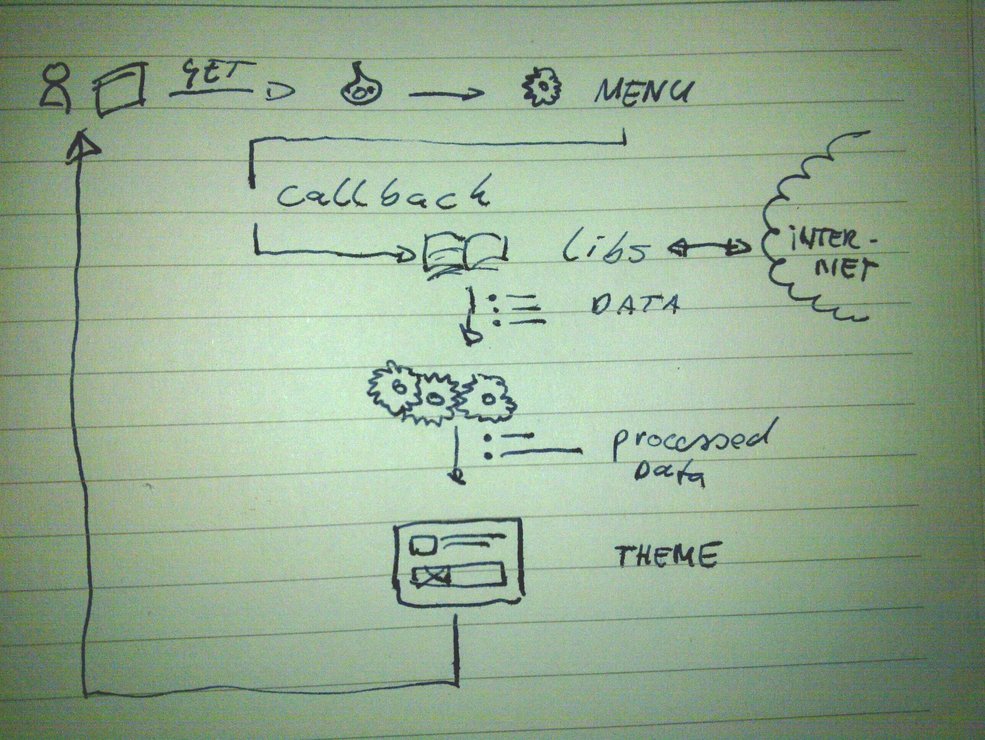 GET
MENU
callback
libs
iNTER-
NET
DATA
processed
Data
THEME